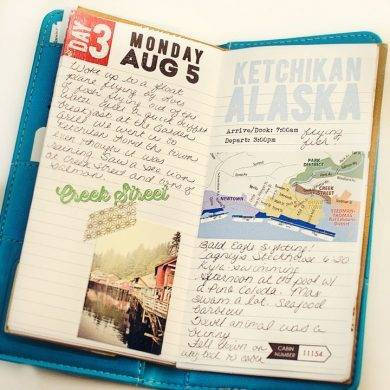 DAY 3
MONDAY
AUG 5
Woke up to a float
plane flying by. Lots
of fish flying out of the
water. a quick buffet
breakfast at the Garden
Grill we went in to
Ketchikan. the town
even though it was
raining. Saw a sea lion
at Creek Street and tons of
salmon.
Creek Street
KETCHIKAN
ALASKA
Arrive/Dock: 7:00am
Depart: 3:00pm
flying
fish
PARK
DISTRICT
CREEK
STREET
NEWTOWN
STEDMAN-
THOMAS
Bald Eagle Sighting!
Cagney's Steakhouse 6:30
Kyra swimming
afternoon at the pool w/
a Pina Colada. Max
swam a lot. Seafood
barbecue
Towel animal was a
bunny
Fell down on
to cabin
CABIN
NUMBER 11154